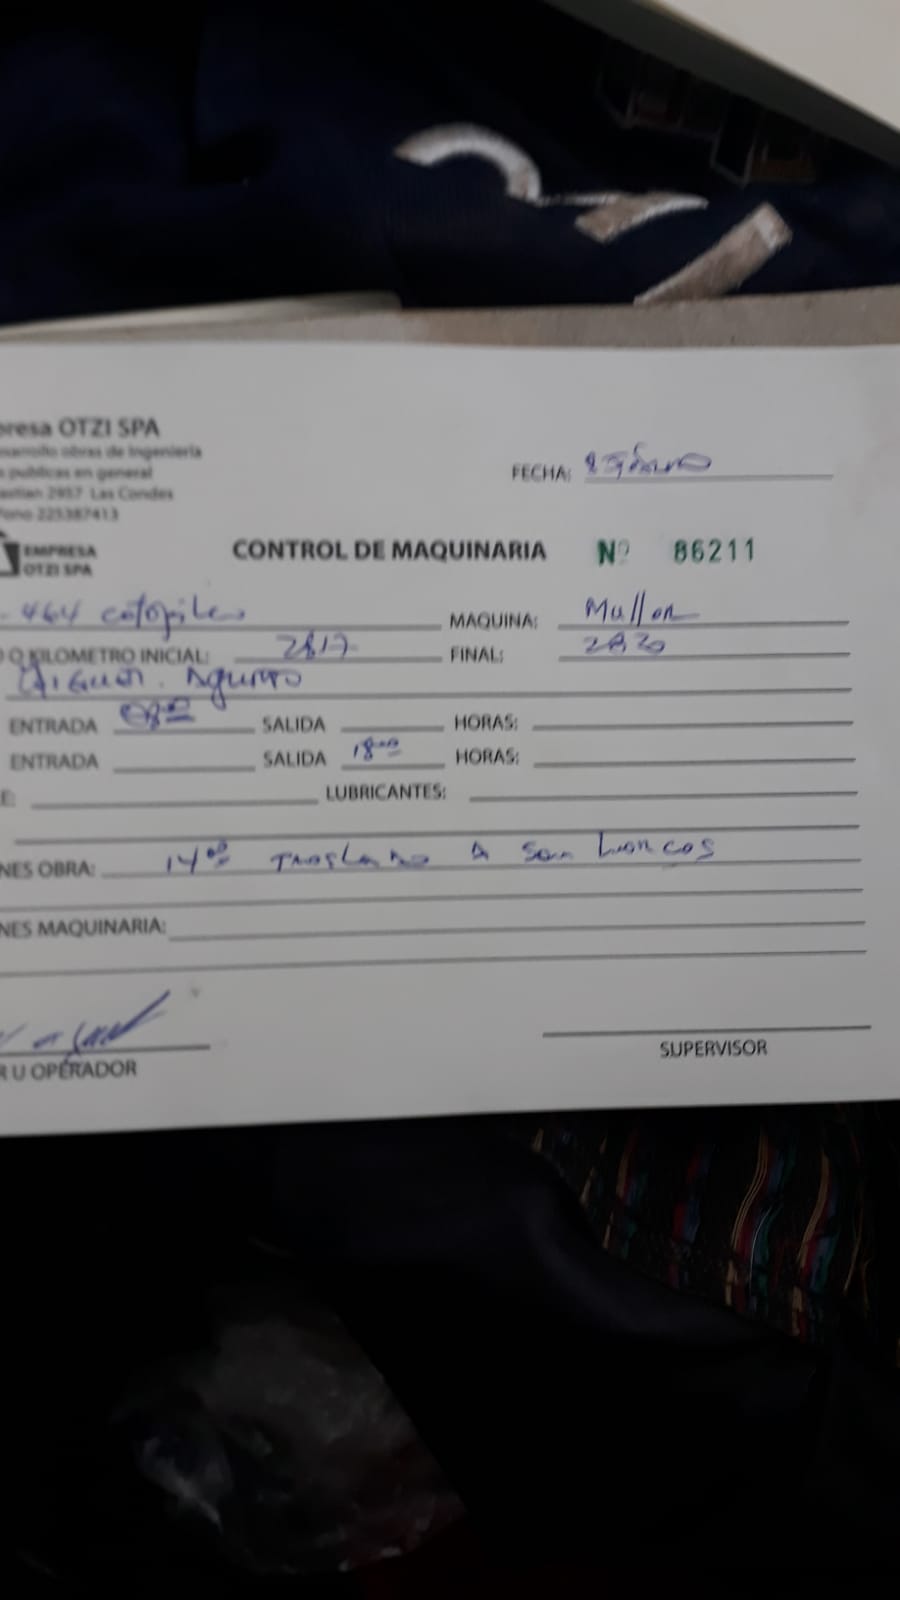 presa OTZI SPA
sarrollo obras de Ingeniería
s publicas en general
astian 2957 Las Condes
fono 225387413
FECHA:
EMPRESA
OTZI SPA
CONTROL DE MAQUINARIA Nº 86211
464 MAQUINA:
O KILOMETRO INICIAL: 2817 FINAL: 2820
ENTRADA 08:00 SALIDA HORAS:
ENTRADA SALIDA 18:00 HORAS:
E: LUBRICANTES:
NES OBRA: 14:00 Traslado a San
NES MAQUINARIA:
R U OPERADOR
SUPERVISOR